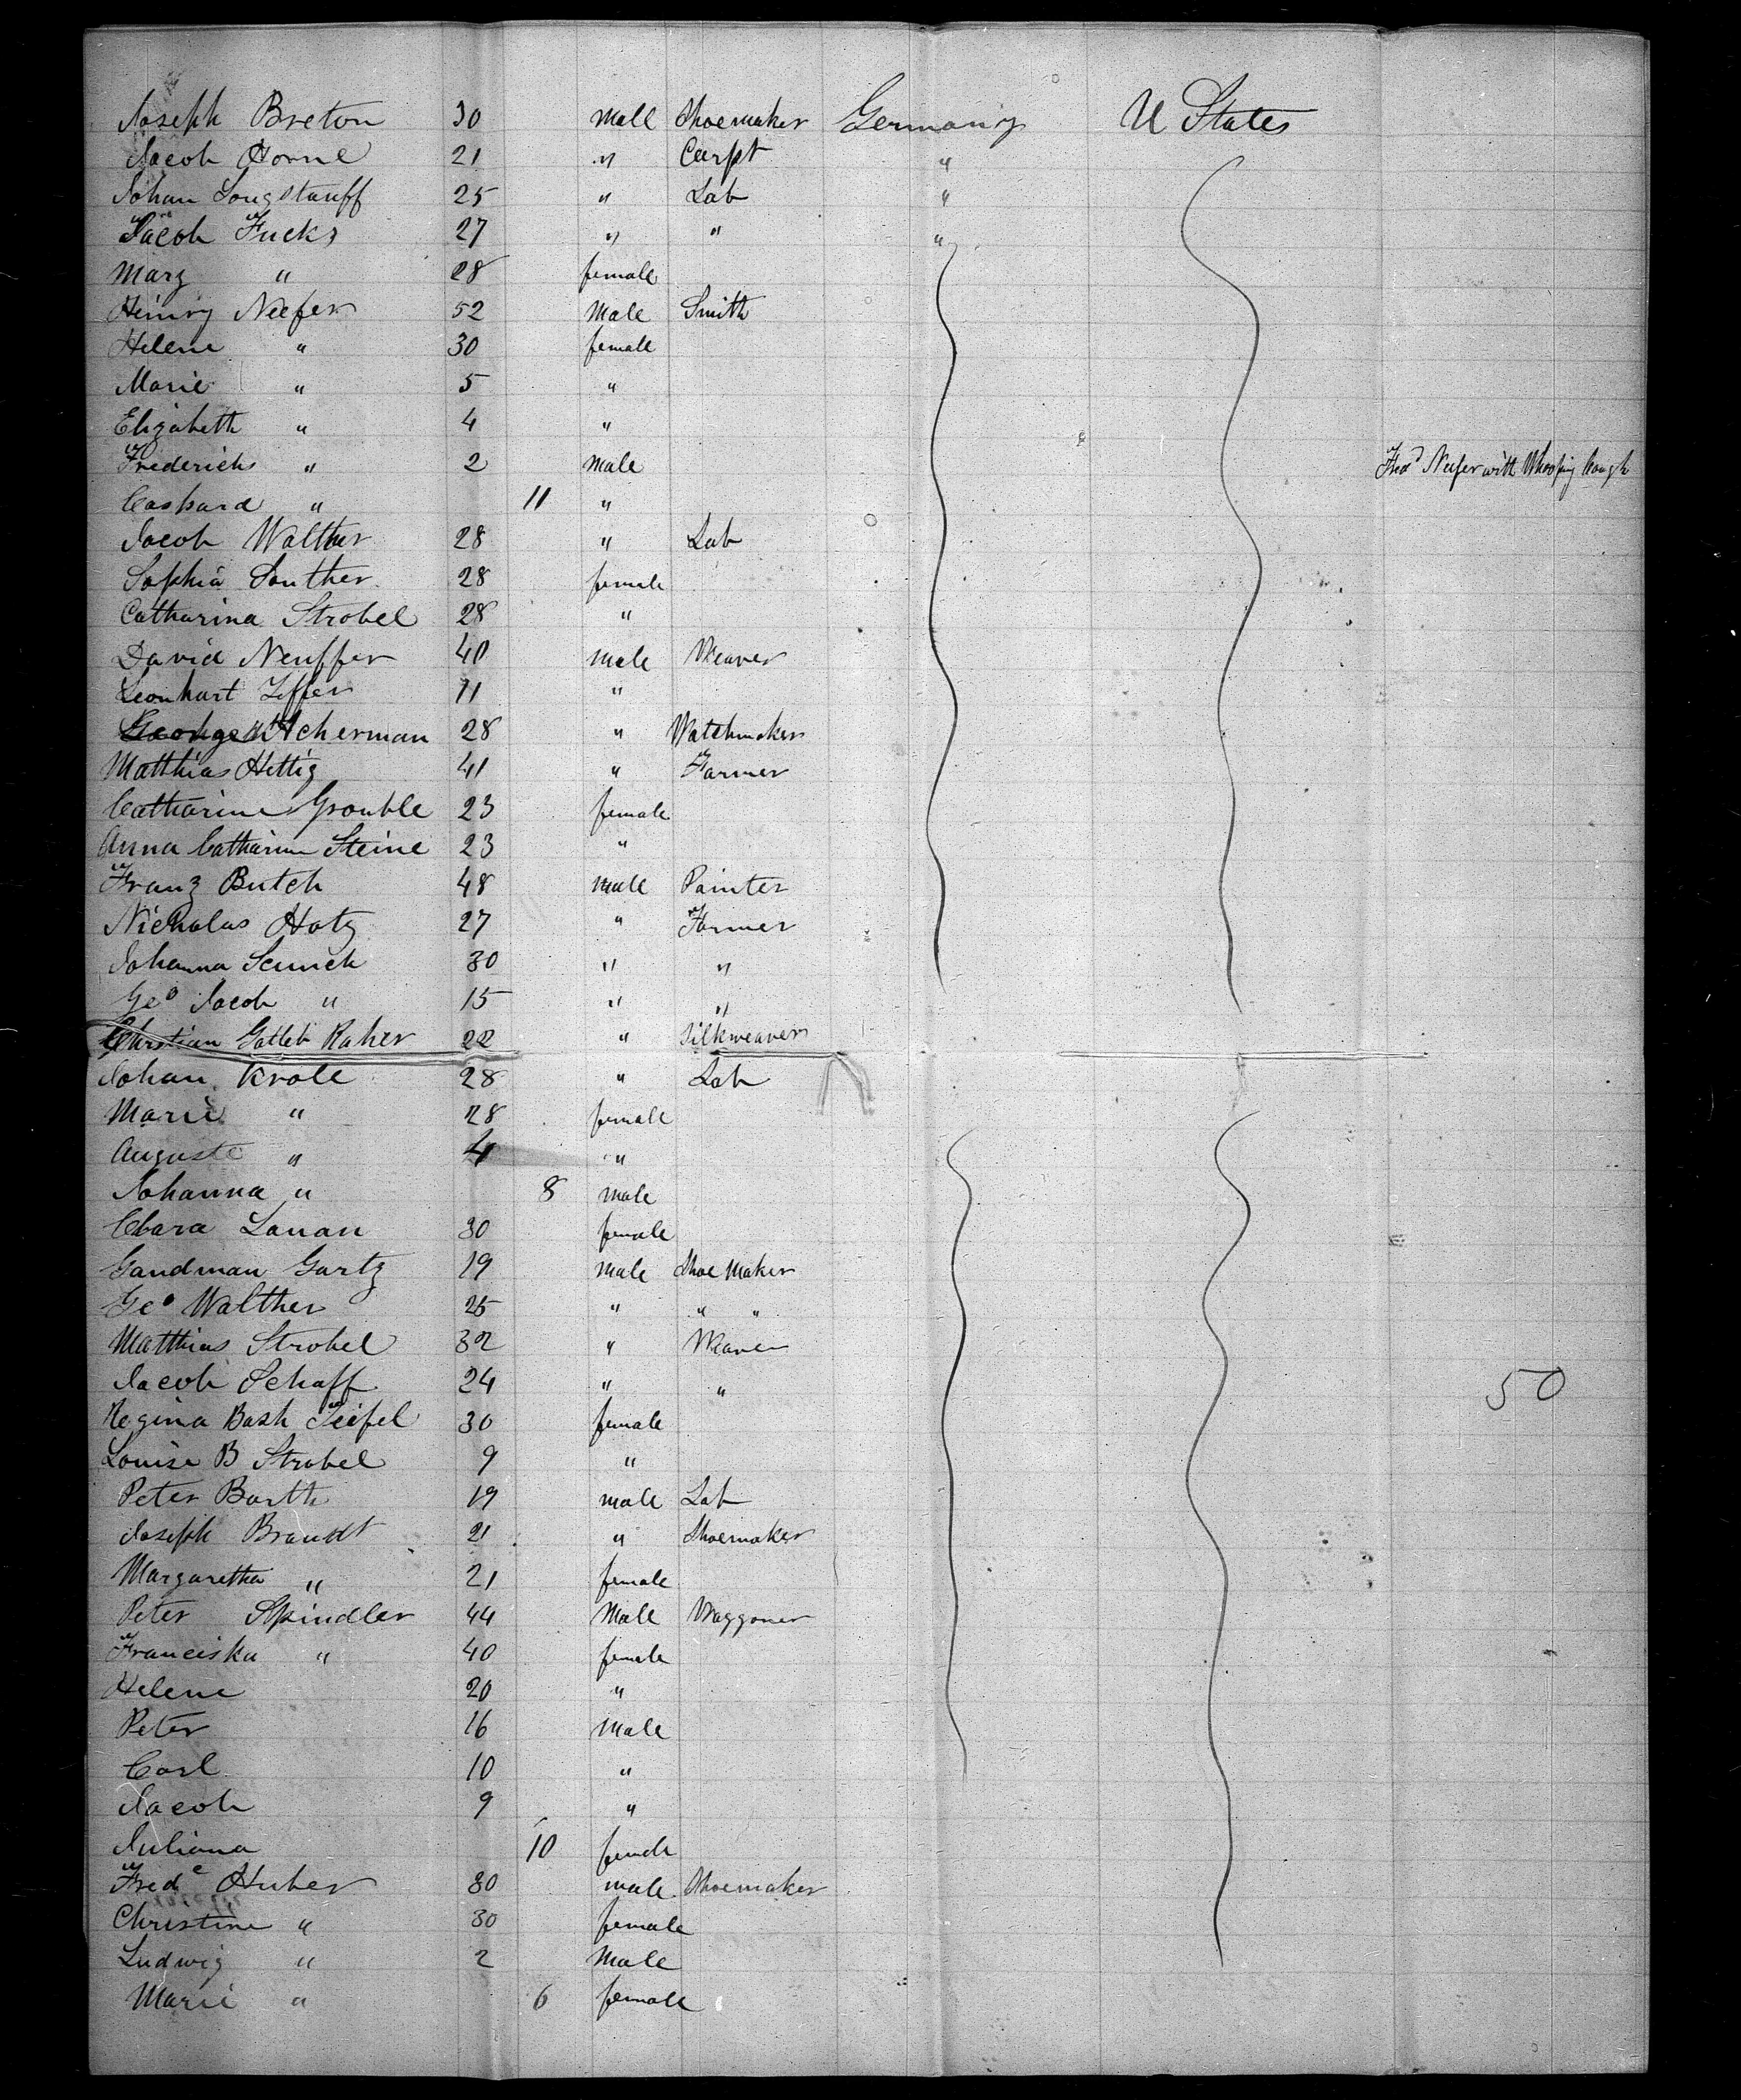 Joseph Breton 30 Male Shoemaker Germany U States
Jacob Horne 21 " Carpt "
Johan Longstauff 25 " Lab "
Jacob Fucks 27 " " "
Mary " 28 female
Henry Neefer 52 Male Smith
Helene " 30 female
Marie " 5 "
Elizabeth " 4 "
Frederichs " 2 male Fred Neefer with Whooping Cough
Caspard " 11 "
Jacob Walther 28 " Lab
Sophia Souther 28 female
Catharina Strobel 28 "
David Neuffer 40 male Weaver
Leonhart Zeffer 11 "
George Acherman 28 " Watchmaker
Matthias Hettig 41 " Farmer
Catharine Grouble 23 female
Anna Catharine Steine 23 "
Franz Butch 48 male Painter
Nicholas Hotz 27 " Farmer
Johanna Scunck 30 " "
Geo Jacob " 15 " "
Christian Gotleb Raher 22 " Silkweaver
Johan Krole 28 " Lab
Marie " 28 female
Auguste " 4 "
Johanna " 8 male
Clara Lauan 30 female
Gandman Gartz 19 male Shoe Maker
Geo Walther 25 " " "
Matthias Strobel 32 " Weaver
Jacob Schaff 24 " " 50
Regina Bash Seifel 30 female
Louise B Strobel 9 "
Peter Barth 19 male Lab
Joseph Brandt 21 " Shoemaker
Margaretha " 21 female
Peter Spindler 44 Male Waggoner
Franciska " 40 female
Helene 20 "
Peter 16 male
Carl 10 "
Jacob 9 "
Juliana 10 female
Fredc Huber 30 male Shoemaker
Christine " 30 female
Ludwig " 2 Male
Marie " 6 female